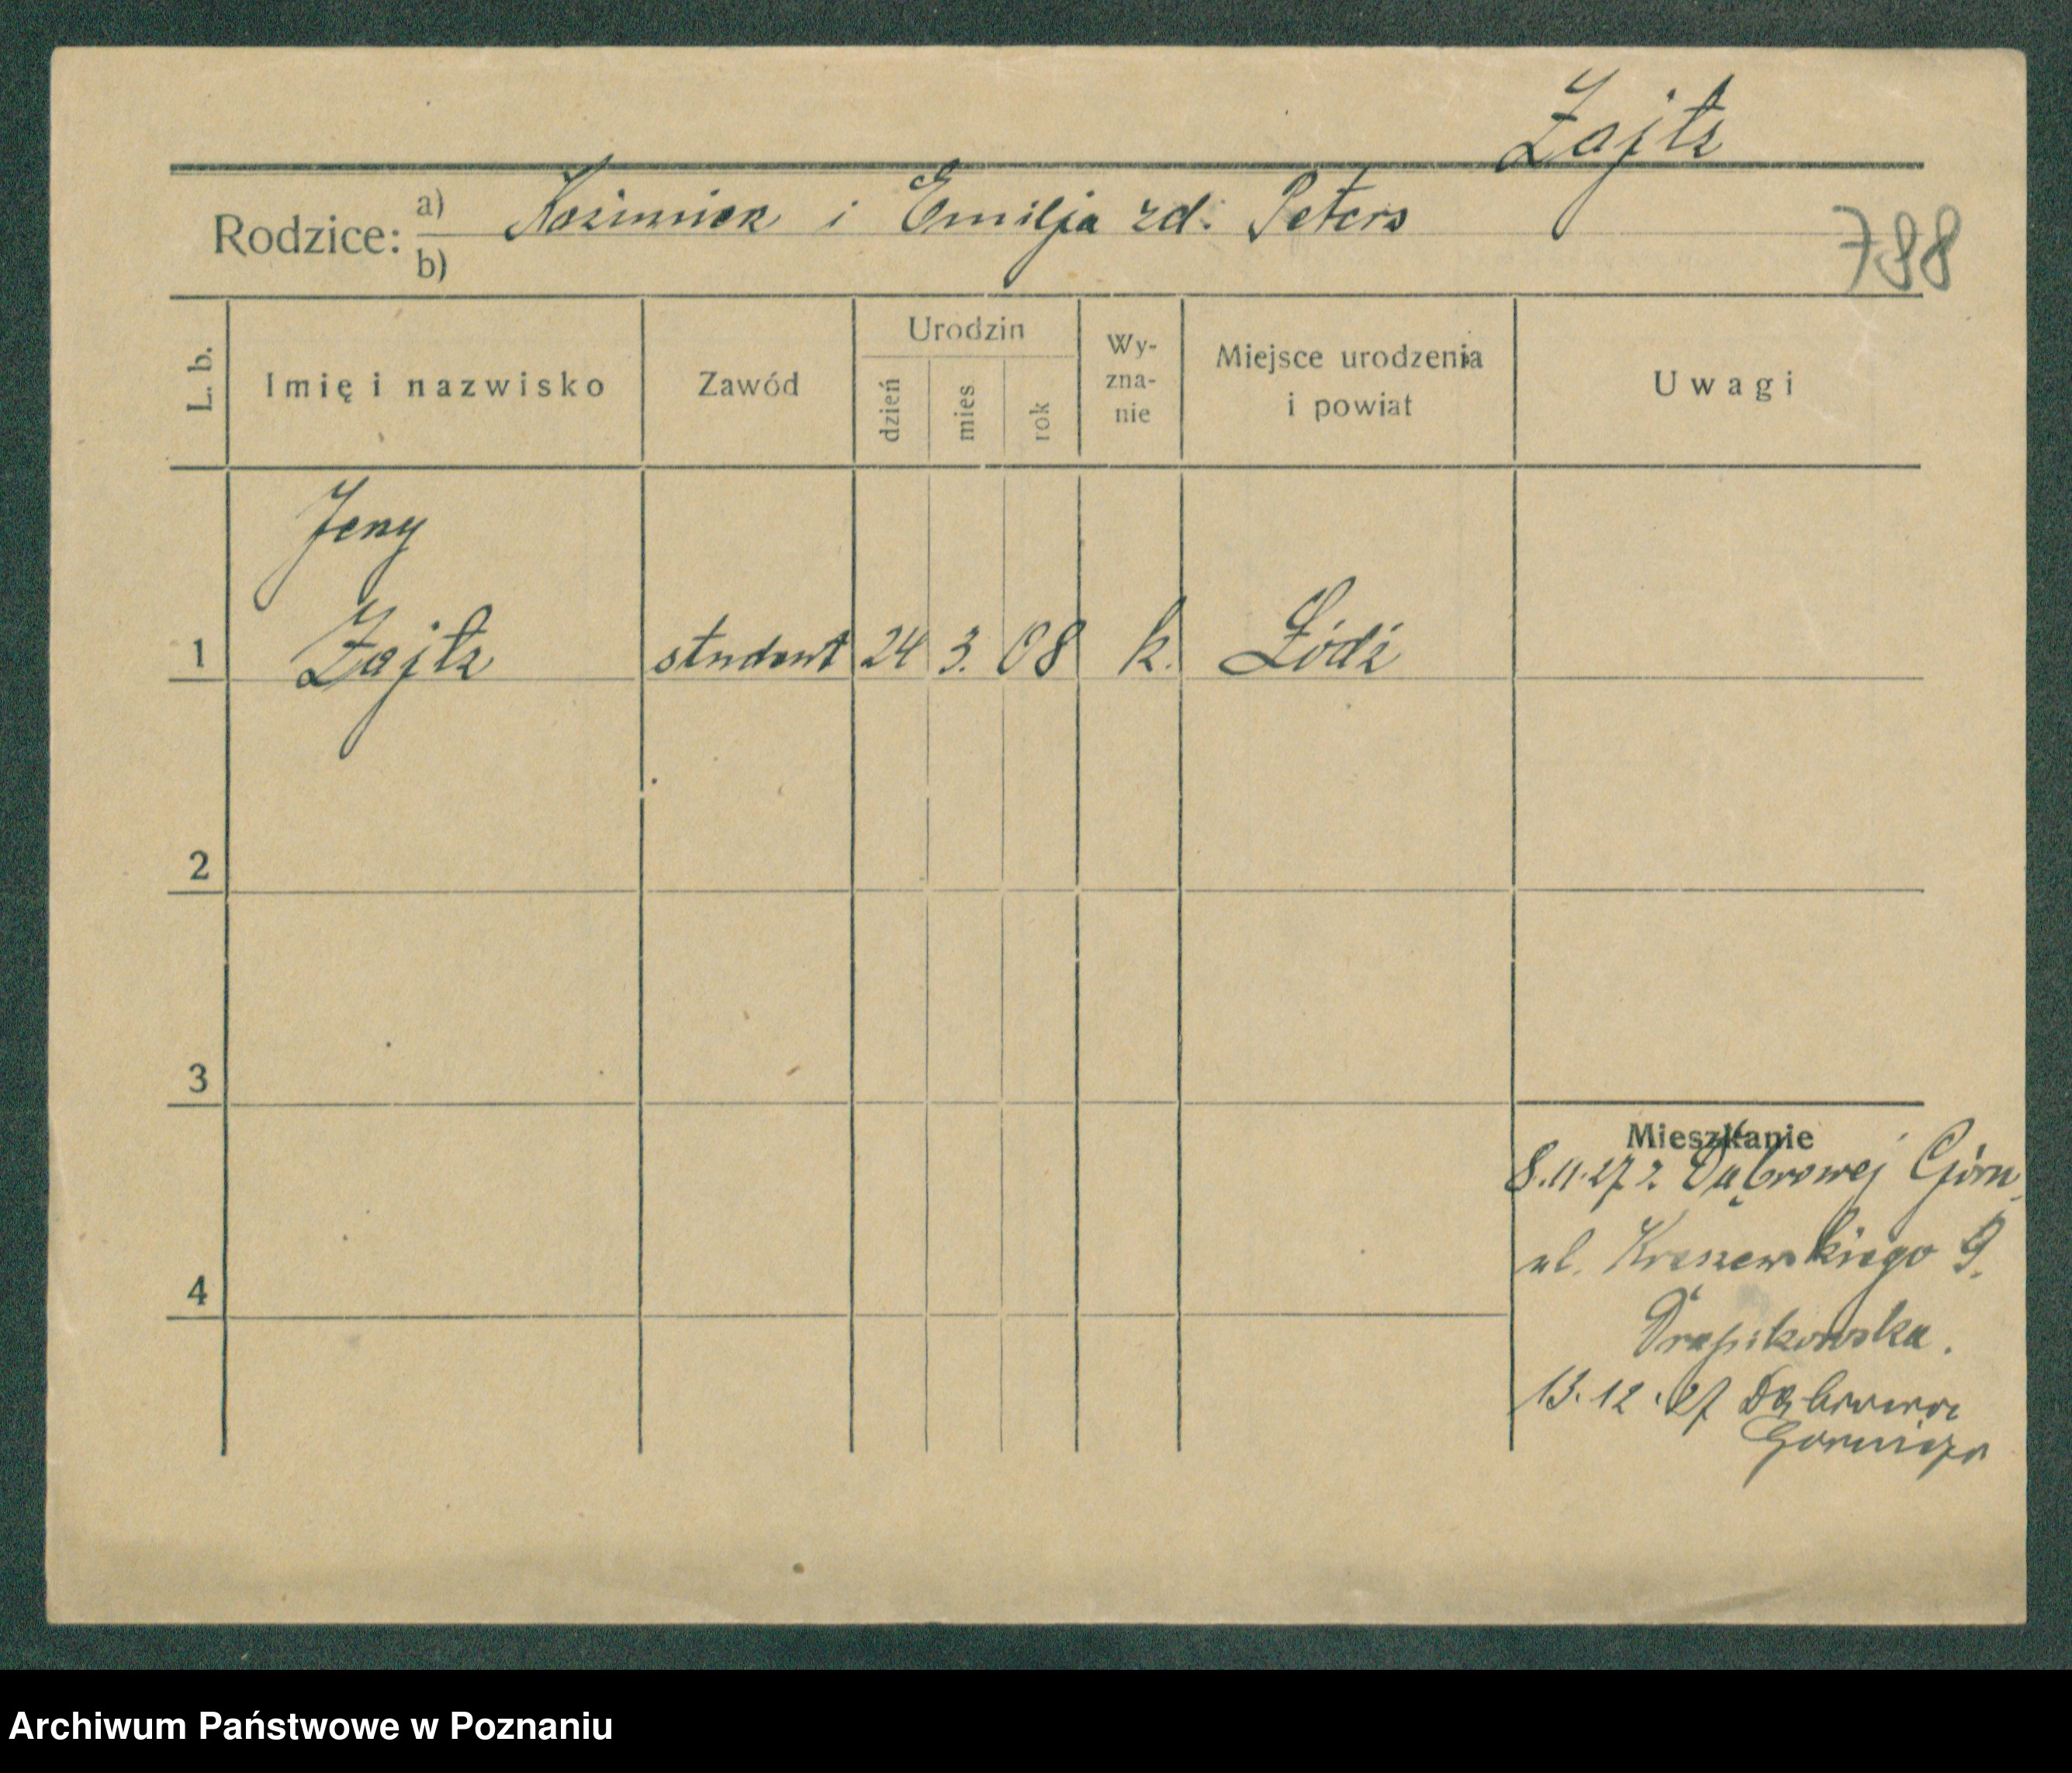 Zajtz
Rodzice: a) Kazimierz i Emilja zd. Peters
b)
788
L. b.
Imię i nazwisko
Zawód
Urodzin
dzień
mies
rok
Wy-
zna-
nie
Miejsce urodzenia
i powiat
Uwagi
Jerzy
1 Zajtz student 24 3. 08 k. Łódź
2
3
4
Mieszkanie
8.11.27 z Dąbrowej Górn.
ul. Kraszewskiego 9.
Drapikowska.
13.12.27 Dąbrowa
Gornicza
Archiwum Państwowe w Poznaniu